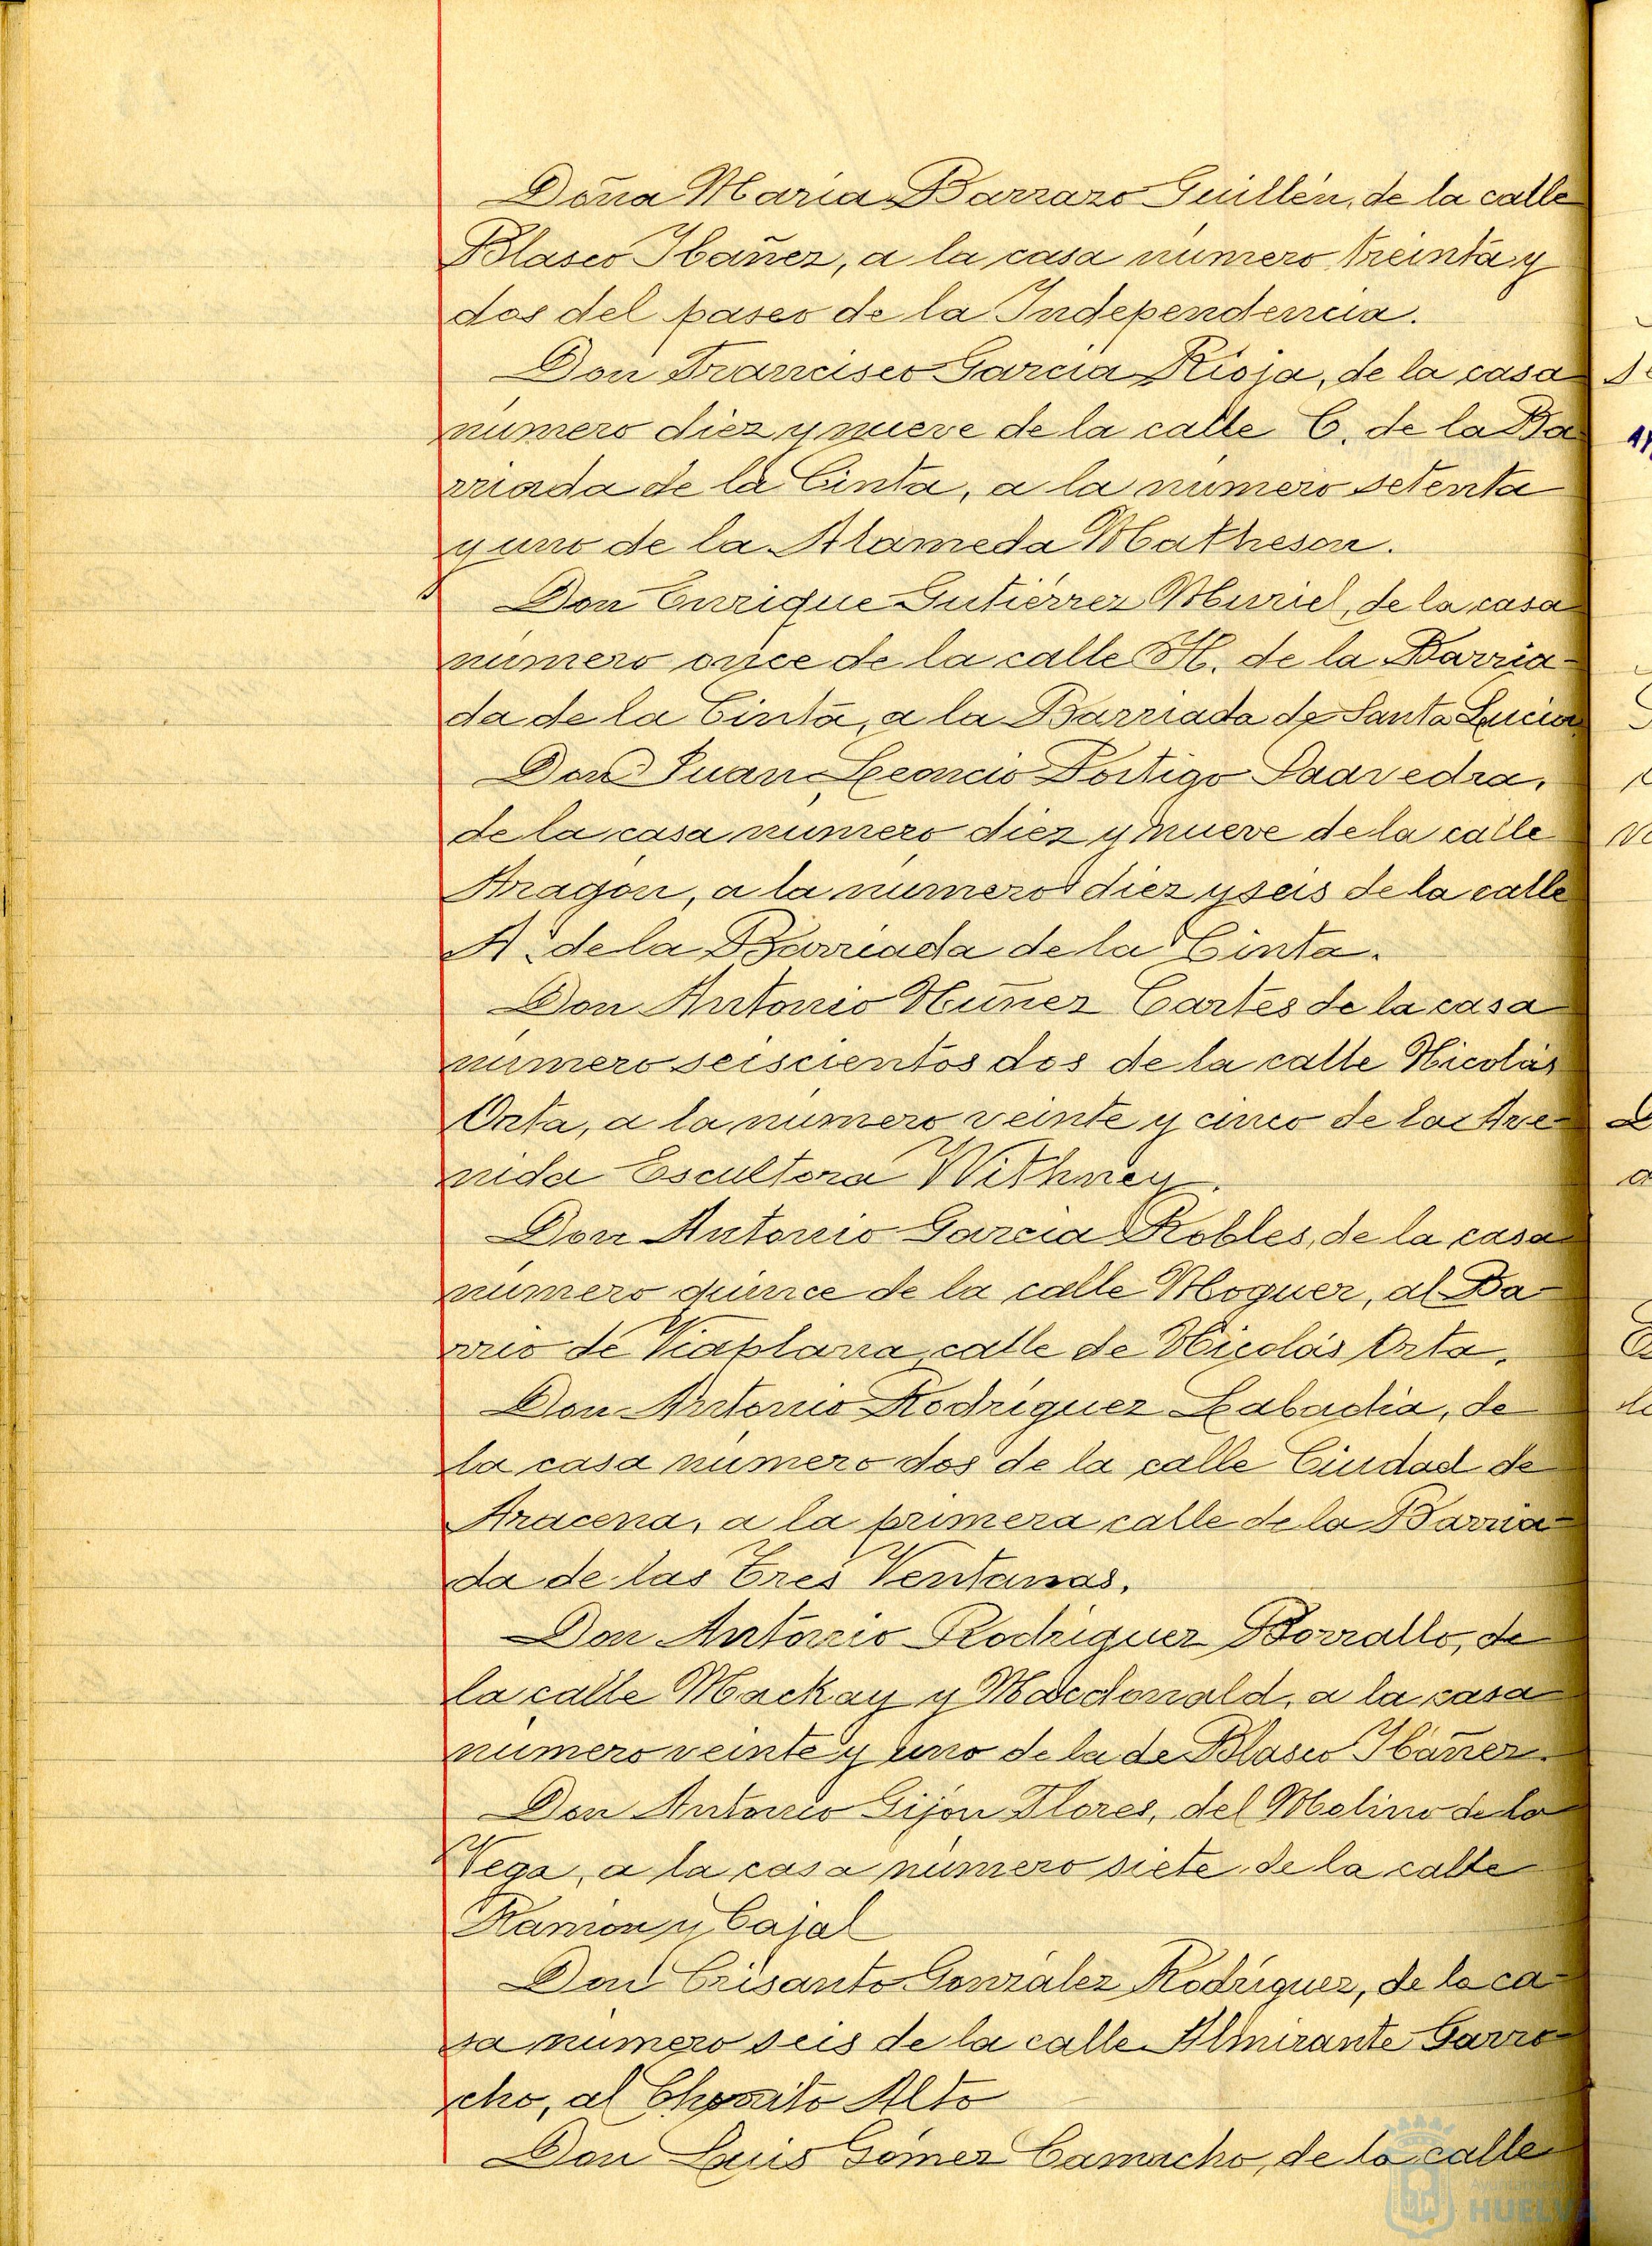 Doña María Barrazo Guillén, de la calle
Blasco Ibañez, a la casa número treinta y
dos del paseo de la Independencia.
Don Francisco García Rioja, de la casa
número diez y nueve de la calle C. de la Ba
rriada de la Cinta, a la número setenta
y uno de la Alameda Matheson.
Don Enrique Gutiérrez Muriel, de la casa
número once de la calle H. de la Barria-
da de la Cinta, a la Barriada de Santa Lucía
Don Juan Leoncio Postigo Saavedra,
de la casa número diez y nueve de la calle
Aragón, a la número diez y seis de la calle
A. de la Barriada de la Cinta.
Don Antonio Nuñez Cartes de la casa
número seiscientos dos de la calle Nicolás
Orta, a la número veinte y cinco de la Ave-
nida Escultora Withney.
Don Antonio García Robles, de la casa
número quince de la calle Moguer, al Ba-
rrio de Viaplana, calle de Nicolás Orta.
Don Antonio Rodríguez Labadía, de
la casa número dos de la calle Ciudad de
Aracena, a la primera calle de la Barria-
da de las Tres Ventanas.
Don Antonio Rodríguez Borrallo, de
la calle Mackay y Macdonald, a la casa
número veinte y uno de la de Blasco Ibáñez.
Don Antonio Gijón Flores, del Molino de la
Vega, a la casa número siete de la calle
Ramón y Cajal
Don Crisanto González Rodríguez, de la ca-
sa número seis de la calle Almirante Garro-
cho, al Chorrito Alto
Don Luis Gómez Camacho, de la calle
HUELVA